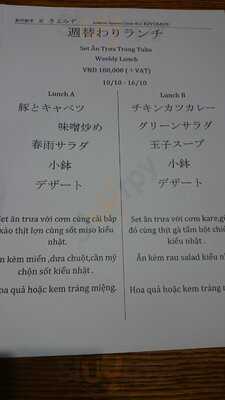 週替わりランチ
Set Ăn Trưa Trong Tuần
Weekly Lunch
VND 160,000 (+ VAT)
10/10 - 16/10
Lunch A
豚とキャベツ
味噌炒め
春雨サラダ
小鉢
デザート
Set ăn trưa với cơm cùng cải bắp
xào thịt lợn cùng sốt miso kiểu
nhật.
ăn kèm miến ,dưa chuột,cần mỹ
chộn sốt kiểu nhật .
Hoa quả hoặc kem tráng miệng.
Lunch B
チキンカツカレー
グリーンサラダ
玉子スープ
小鉢
デザート
Set ăn trưa với cơm kare,
đó cùng thịt gà tẩm bột
kiểu nhật .
Ăn kèm rau salad kiểu
Hoa quả hoặc kem tráng